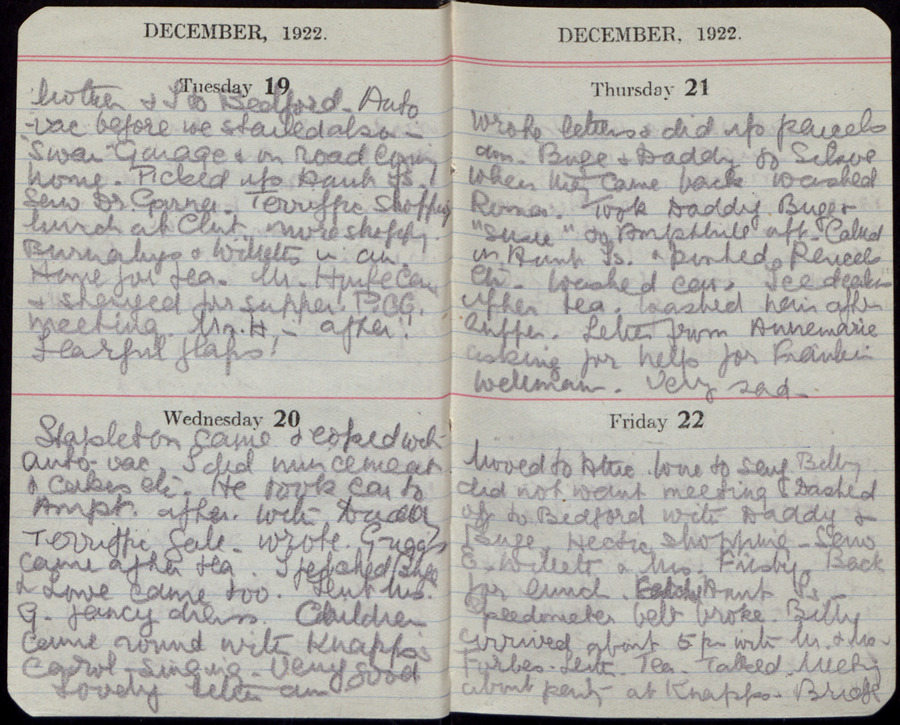 DECEMBER, 1922.
Tuesday 19
Mother & I to Bedford. Auto
-vac before we started also -
"Swan" Garage & on road coming
home. Picked up Aunt Is.
Seen Dr. Garner. Terriffic shopping
lunch at Club. more shopping.
Burnabys & Willetts in
Home for tea. Mr. came
& stayed for supper! P.C.C.
meeting. Mr. H. - after!
Fearful flaps!
Wednesday 20
Stapleton came & coped with
auto-vac. I did mincemeat
& cakes etc. He took car to
Ampt. after. with Daddy
Terriffic Gale. wrote.
came after tea. I fetched Buge
& Love came too. Lent Mrs.
G. fancy dress. Children
came round with Knapps
Carol-singing. Very good
Lovely letter am
DECEMBER, 1922.
Thursday 21
Wrote letters & did up parcels
am. Buge & Daddy to Silsoe
when they came back washed
Roma. Took Daddy, Buge &
"Susie" to Ampthill aft. Called
on Aunt Is. & posted Parcels
etc. Washed car.
after tea. washed hair after
supper. Letter from Annemarie
asking for help for
Wellmann. Very sad.
Friday 22
Moved to Attic. Love to Billy
did not want meeting & Dashed
off to Bedford with Daddy &
Buge. Hectic shopping - Seen
E. Willett & Mrs. Frisby. Back
for lunch. Aunt Is -
Speedometer belt broke. Billy
arrived about 5 pm with Mr. & Mrs.
Forbes. Tea. Talked.
about party at Knapps. Bridge